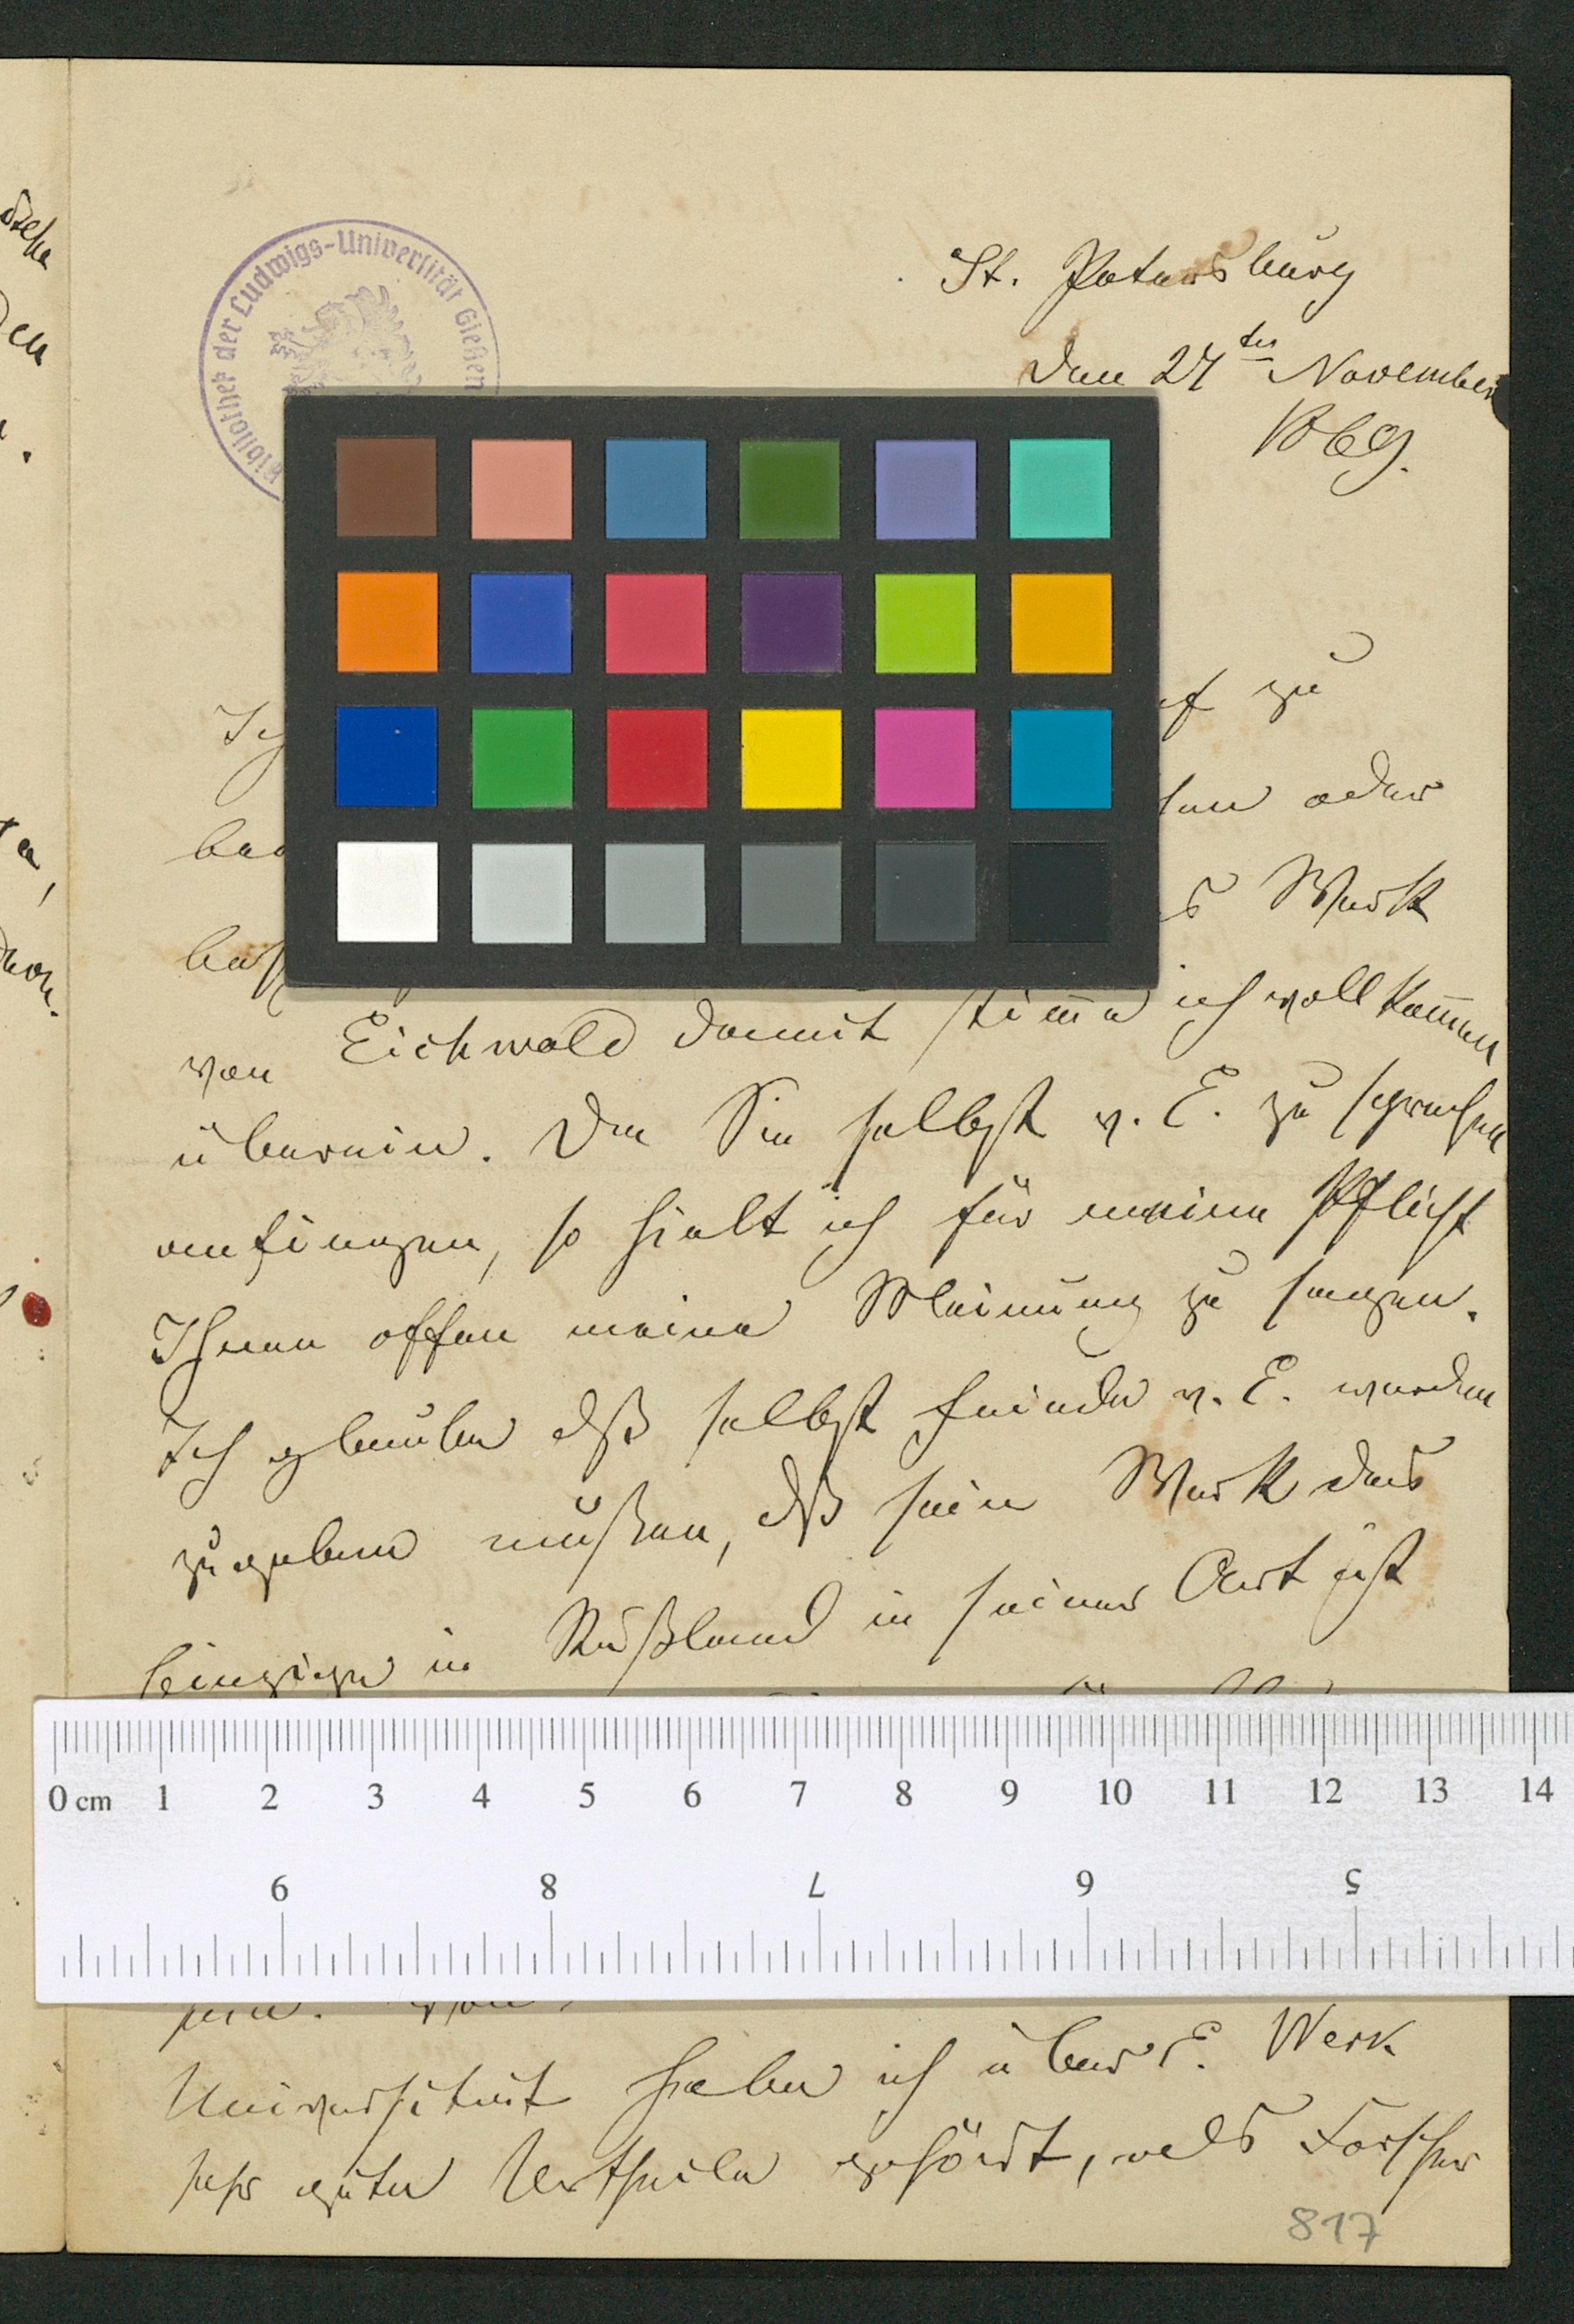 Bibliothek der Ludwigs-Universität Gießen
St. Petersburg
den 27ten November
1869.
zu
oder
Werk
von Eichwald damit stim̄e ich vollkom̄en
überein. Da Sie selbst v. E. zu sprechen
anfingen, so hielt ich für meine Pflicht
Ihnen offen meine Meinung zu sagen.
Ich glaube dß selbst Feinde v. E. werden
zugeben mußen, dß sein Werk das
einzige in Rußland in seiner Art ist
0 cm 1 2 3 4 5 6 7 8 9 10 11 12 13 14
9 8 7 6 5
Universität habe ich über E. Werk
sehr gute Urtheile gehört, als Forscher
817